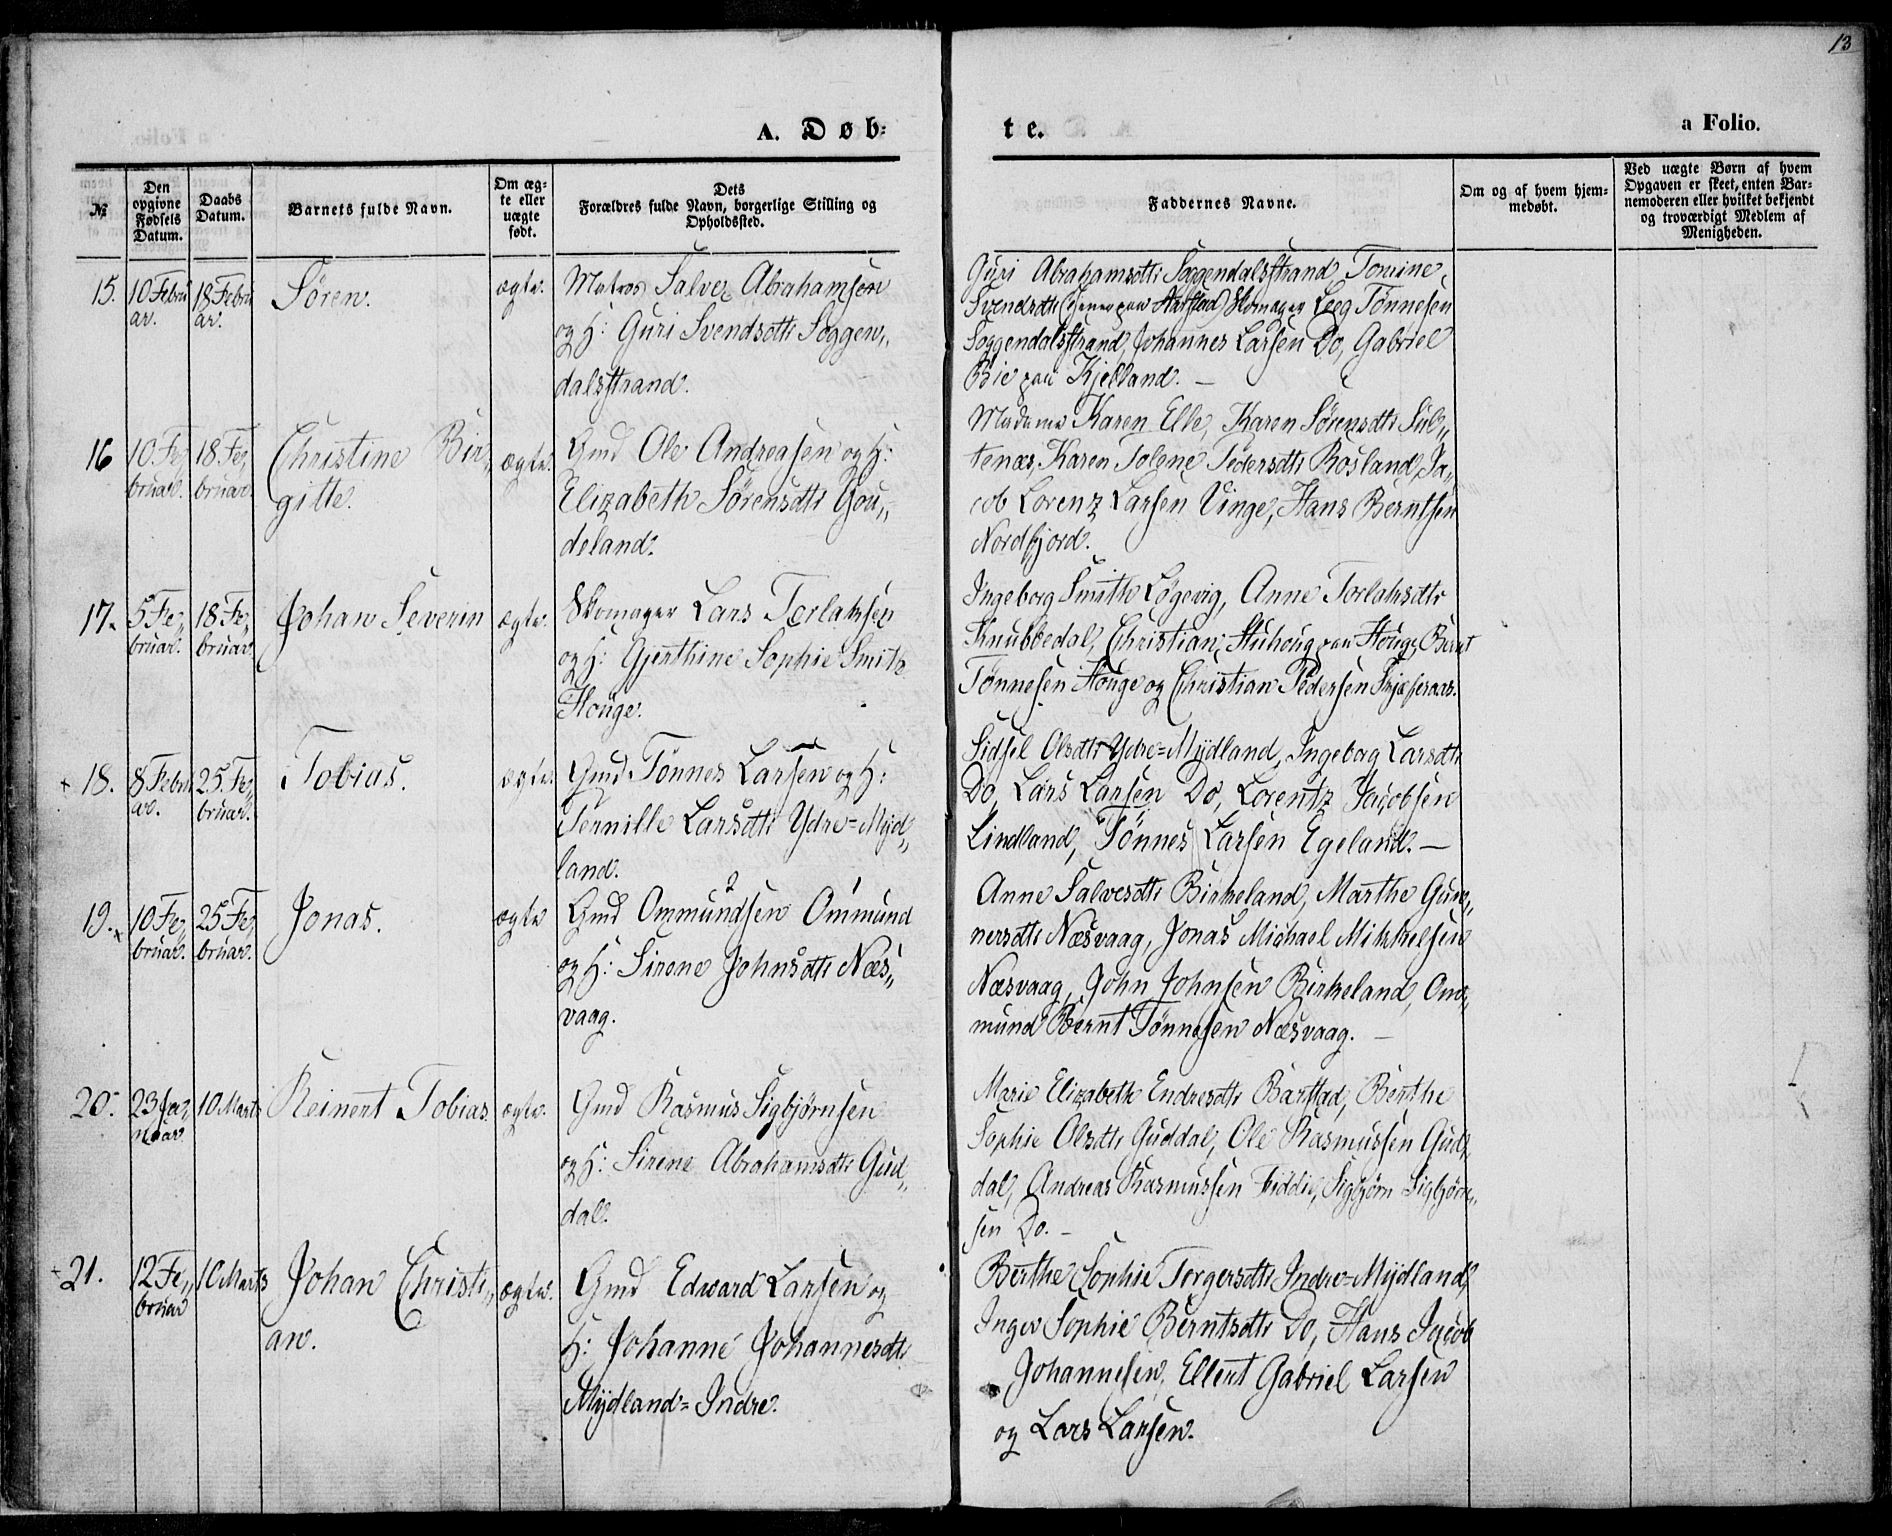 13
A. Døb=
te.
a Folio.
№
Den opgivne Fødsels Datum.
Daabs Datum.
Barnets fulde Navn.
Om ægte eller uægte født.
Dets Forældres fulde Navn, borgerlige Stilling og Opholdssted.
Faddernes Navne.
Om og af hvem hjemmedøbt.
Ved uægte Børn af hvem Opgaven er skeet, enten Barnemoderen eller hvilket bekjendt og troværdigt Medlem af Menigheden.
15. 10 Febru 18 Febru Søren. ægte. Matros Salve Abrahamsen
ar. ar. og H: Guri Svendsdttr Soggen„
dalsstrand.
Guri Abrahamsdttr Soggendalsstrand, Tomine
Svendsdttr tjener paa Skomager Tønnesen
Soggendalsstrand, Johannes Larsen Do, Gabriel
Bie paa Kjelland. —
16 10 Fe„ 18 Fe„ Christine Bir„ ægte. Gmd Ole Andreasen og H:
bruar. bruar. gitte. Elizabeth Sørensdttr Gou„
deland.
Madame Karen Elle, Karen Sørensdttr
Karen Tolene Pedersdttr Rosland, Ja„
cob Lorenz Larsen Vinge, Hans Berntsen
Nordfjord.
17. 5 Fe„ 18 Fe„ Johan Severin ægte. Skomager Lars Torlaksen
bruar. bruar. og H: Gjerthine Sophie Smith
Houge.
Ingeborg Smith Løgevig, Anne Torlaksdttr
Knubbedal, Christian paa Houge, Bernt
Tønnesen Houge og Christian Pedersen
+ 18. 8 Febru 25 Fe„ Tobias. ægte. Gmd Tønnes Larsen og H:
ar. bruar. Pernille Larsdttr Ydre=Mydl„
land.
Sidsel Olsdttr Ydre=Mydland, Ingeborg Larsdttr
Do, Lars Larsen Do, Lorentz Jacobsen
Lindland, Tønnes Larsen Egeland. —
19. x 10 Fe„ 25 Fe„ Jonas. ægte Gmd Ommundsen 2 Ommund 1
bruar. bruar. og H: Sirene Johnsdttr Næs„
vaag.
Anne Salvesdttr Birkeland, Marthe Gun„
nersdttr Næsvaag, Jonas Michael Mikkelsen
Næsvaag, John Johnsen Birkeland, Om„
mund Bernt Tønnesen Næsvaag. —
20. 23 Ja„ 10 Marts Reinert Tobias. ægte. Gmd Rasmus Sigbjørnsen
nuar og H: Sirene Abrahamsdttr Gud„
dal.
Marie Elizabeth Endresdttr Barstad, Berthe
Sophie Olsdttr Guddal, Ole Rasmussen Gud„
dal, Andreas Rasmussen Fiddie, Sigbjørn Sigbjørn„
sen Do. —
+ 21. 12 Fe„ 10 Marts Johan Christi„ ægte. Gmd Edward Larsen og
bruar an. H: Johanne Johannesdttr
Mydland=Indre.
Berthe Sophie Torgersdttr Indre=Mydland,
Inger Sophie Berntsdttr Do, Hans Jacob
Johannesen, Ellert Gabriel Larsen
og Lars Larsen.